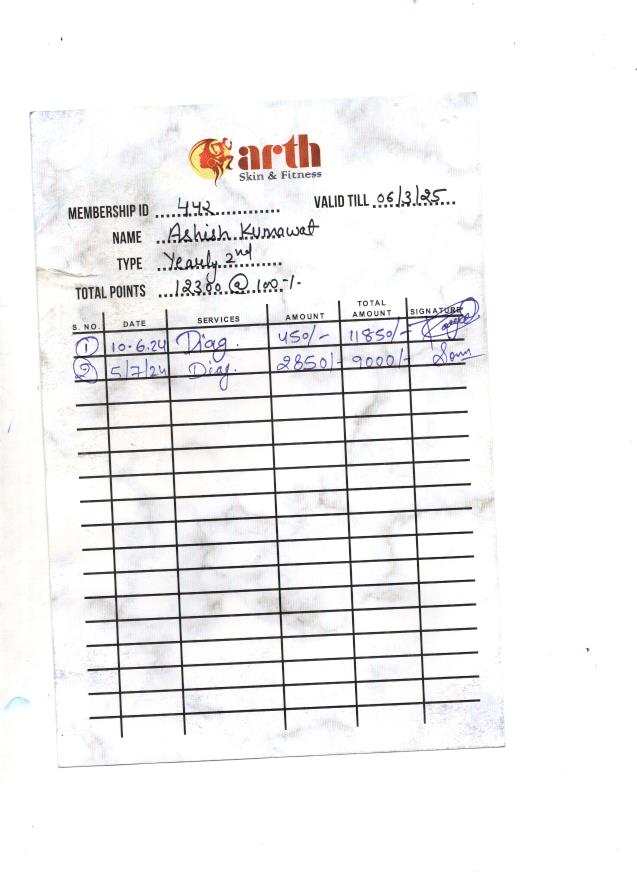 arth
Skin & Fitness
MEMBERSHIP ID 442 VALID TILL 06/3/25
NAME Ashish Kumawat
TYPE Yearly 2nd
TOTAL POINTS 12300 @ 100-/-
S. NO. DATE SERVICES AMOUNT TOTAL AMOUNT SIGNATURE
1 10.6.24 Diag. 450/- 11850/-
2 5/7/24 Diag. 2850/- 9000/-